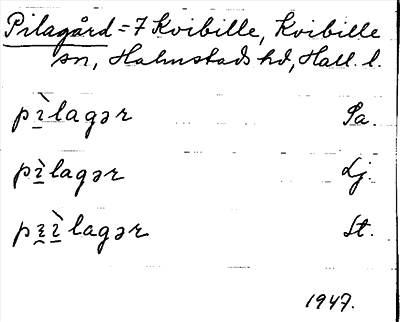 Pilagård = 7 Kvibille, Kvibille
sn, Halmstads hd, Hall. l.
pı̲̀lagər Sa.
pı̲̀lagər Lj.
pı̲̀lagər St.
1947.